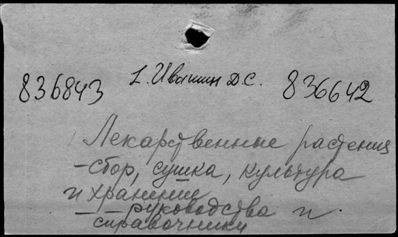 1. Ивашин Д.С.
836843 836642
Лекарственные растения
-сбор, сушка, культура
и хранение
- руководства и
справочники